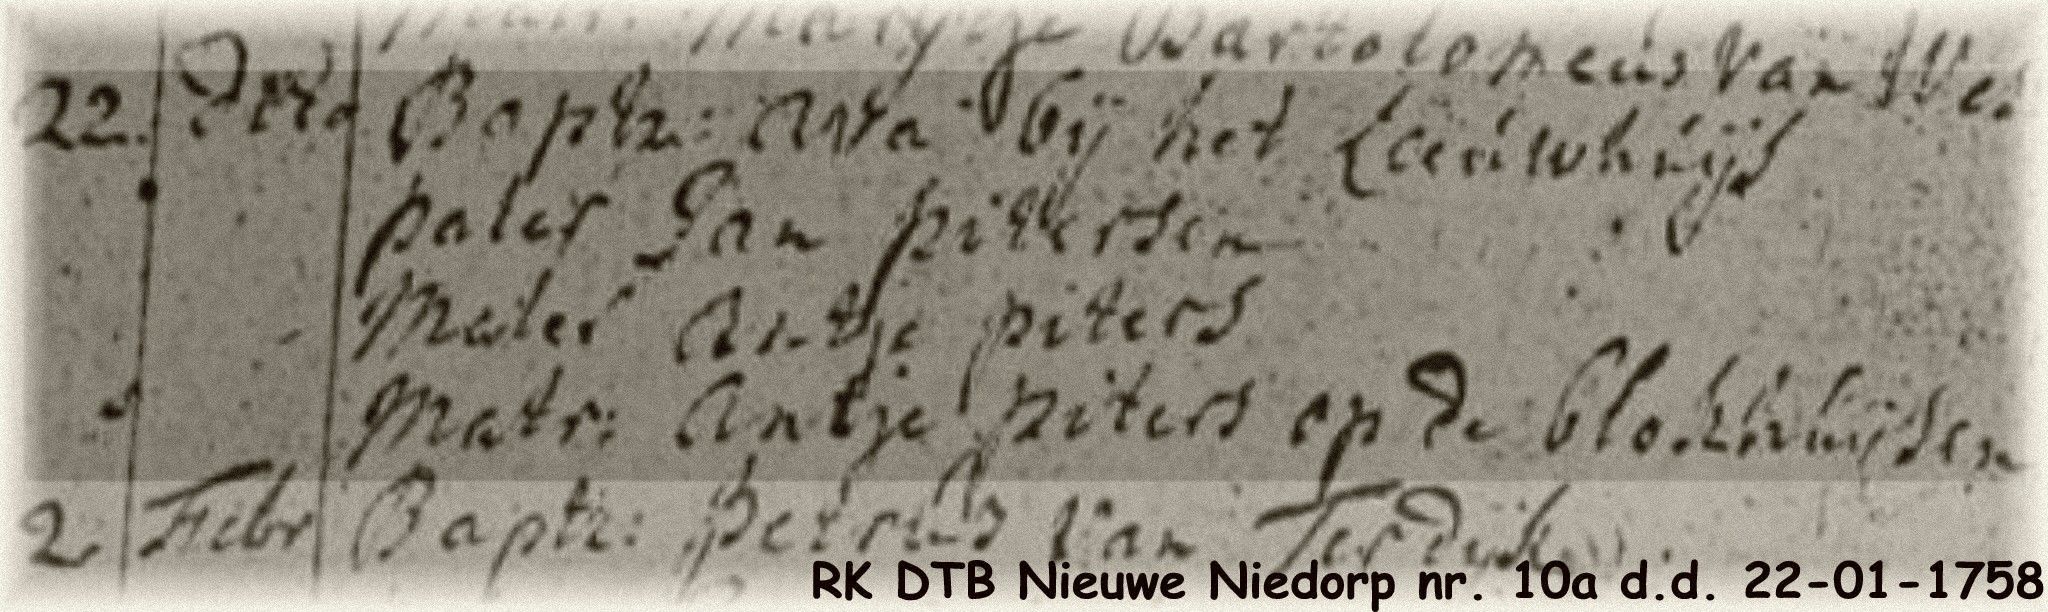 Matr: Marijtje Bartolomeus Van
22. Dito Baptz: Anta bij het Leeuwhuijs
pater Jan pittersen
Mater Antje piters
Matr: Antje piters op de blokhuijsen
2 Febr Baptz: petrus Van
RK DTB Nieuwe Niedorp nr. 10a d.d. 22-01-1758